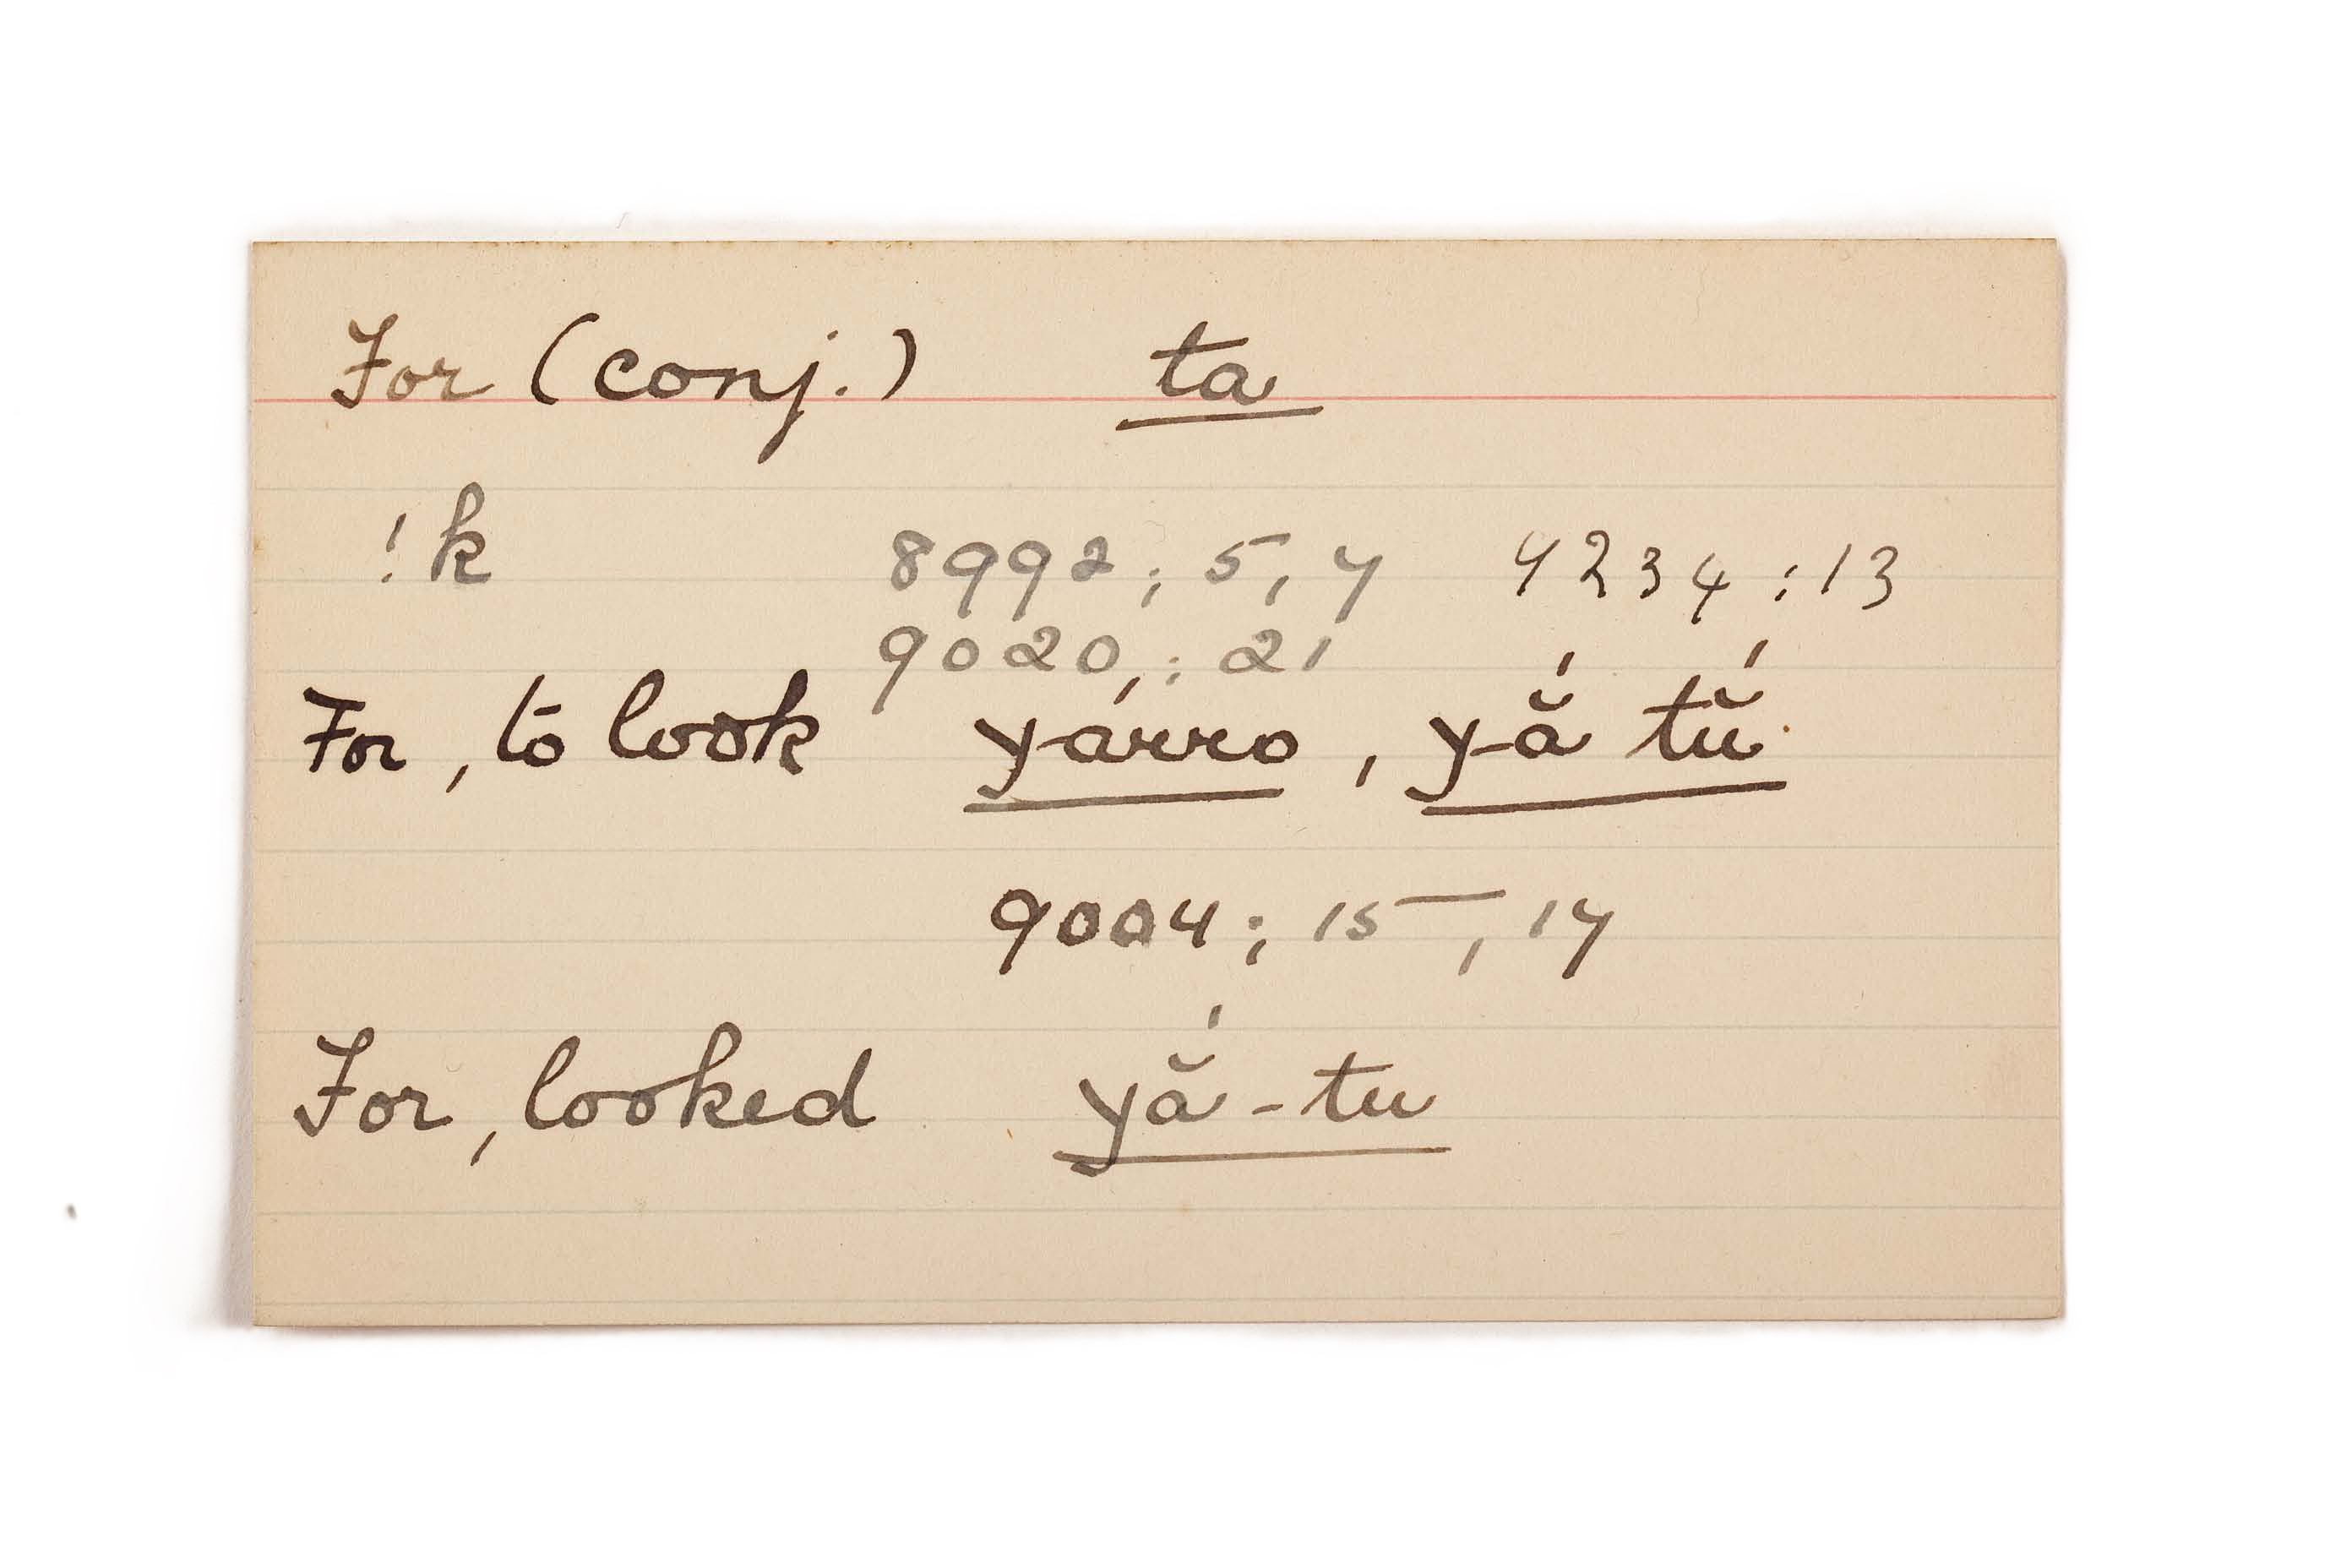 For (conj.) ta
!k 8992; 5, 7 4234:13
9020: 21
For, to look yárro, yắ tŭ́
9004; 15, 17
For, looked yắ-tu